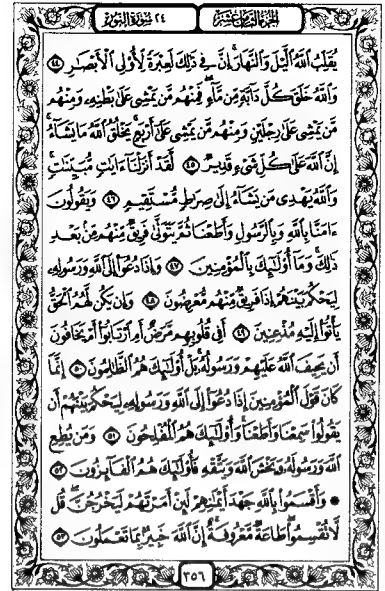 الجزء الثامن عشر ٢٤ سورة النور
يُقَلِّبُ ٱللَّهُ ٱلَّيْلَ وَٱلنَّهَارَ ۚ إِنَّ فِى ذَٰلِكَ لَعِبْرَةً لِّأُو۟لِى ٱلْأَبْصَٰرِ ٤٤
وَٱللَّهُ خَلَقَ كُلَّ دَآبَّةٍ مِّن مَّآءٍ ۖ فَمِنْهُم مَّن يَمْشِى عَلَىٰ بَطْنِهِۦ وَمِنْهُم
مَّن يَمْشِى عَلَىٰ رِجْلَيْنِ وَمِنْهُم مَّن يَمْشِى عَلَىٰٓ أَرْبَعٍ ۚ يَخْلُقُ ٱللَّهُ مَا يَشَآءُ ۚ
إِنَّ ٱللَّهَ عَلَىٰ كُلِّ شَىْءٍ قَدِيرٌ ٤٥ لَّقَدْ أَنزَلْنَآ ءَايَٰتٍ مُّبَيِّنَٰتٍ ۚ
وَٱللَّهُ يَهْدِى مَن يَشَآءُ إِلَىٰ صِرَٰطٍ مُّسْتَقِيمٍ ٤٦ وَيَقُولُونَ
ءَامَنَّا بِٱللَّهِ وَبِٱلرَّسُولِ وَأَطَعْنَا ثُمَّ يَتَوَلَّىٰ فَرِيقٌ مِّنْهُم مِّنۢ بَعْدِ
ذَٰلِكَ ۚ وَمَآ أُو۟لَٰٓئِكَ بِٱلْمُؤْمِنِينَ ٤٧ وَإِذَا دُعُوٓا۟ إِلَى ٱللَّهِ وَرَسُولِهِۦ
لِيَحْكُمَ بَيْنَهُمْ إِذَا فَرِيقٌ مِّنْهُم مُّعْرِضُونَ ٤٨ وَإِن يَكُن لَّهُمُ ٱلْحَقُّ
يَأْتُوٓا۟ إِلَيْهِ مُذْعِنِينَ ٤٩ أَفِى قُلُوبِهِم مَّرَضٌ أَمِ ٱرْتَابُوٓا۟ أَمْ يَخَافُونَ
أَن يَحِيفَ ٱللَّهُ عَلَيْهِمْ وَرَسُولُهُۥ ۚ بَلْ أُو۟لَٰٓئِكَ هُمُ ٱلظَّٰلِمُونَ ٥٠ إِنَّمَا
كَانَ قَوْلَ ٱلْمُؤْمِنِينَ إِذَا دُعُوٓا۟ إِلَى ٱللَّهِ وَرَسُولِهِۦ لِيَحْكُمَ بَيْنَهُمْ أَن
يَقُولُوا۟ سَمِعْنَا وَأَطَعْنَا ۚ وَأُو۟لَٰٓئِكَ هُمُ ٱلْمُفْلِحُونَ ٥١ وَمَن يُطِعِ
ٱللَّهَ وَرَسُولَهُۥ وَيَخْشَ ٱللَّهَ وَيَتَّقْهِ فَأُو۟لَٰٓئِكَ هُمُ ٱلْفَآئِزُونَ ٥٢
۞ وَأَقْسَمُوا۟ بِٱللَّهِ جَهْدَ أَيْمَٰنِهِمْ لَئِنْ أَمَرْتَهُمْ لَيَخْرُجُنَّ ۖ قُل
لَّا تُقْسِمُوا۟ ۖ طَاعَةٌ مَّعْرُوفَةٌ ۚ إِنَّ ٱللَّهَ خَبِيرٌۢ بِمَا تَعْمَلُونَ ٥٣
٣٥٦